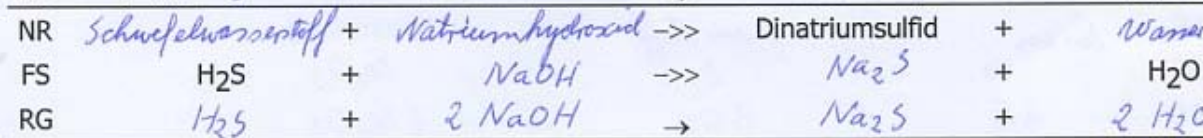 NR Schwefelwasserstoff + Natriumhydroxid ->> Dinatriumsulfid + Wasser
FS H₂S + NaOH ->> Na₂S + H₂O
RG H₂S + 2 NaOH → Na₂S + 2 H₂O